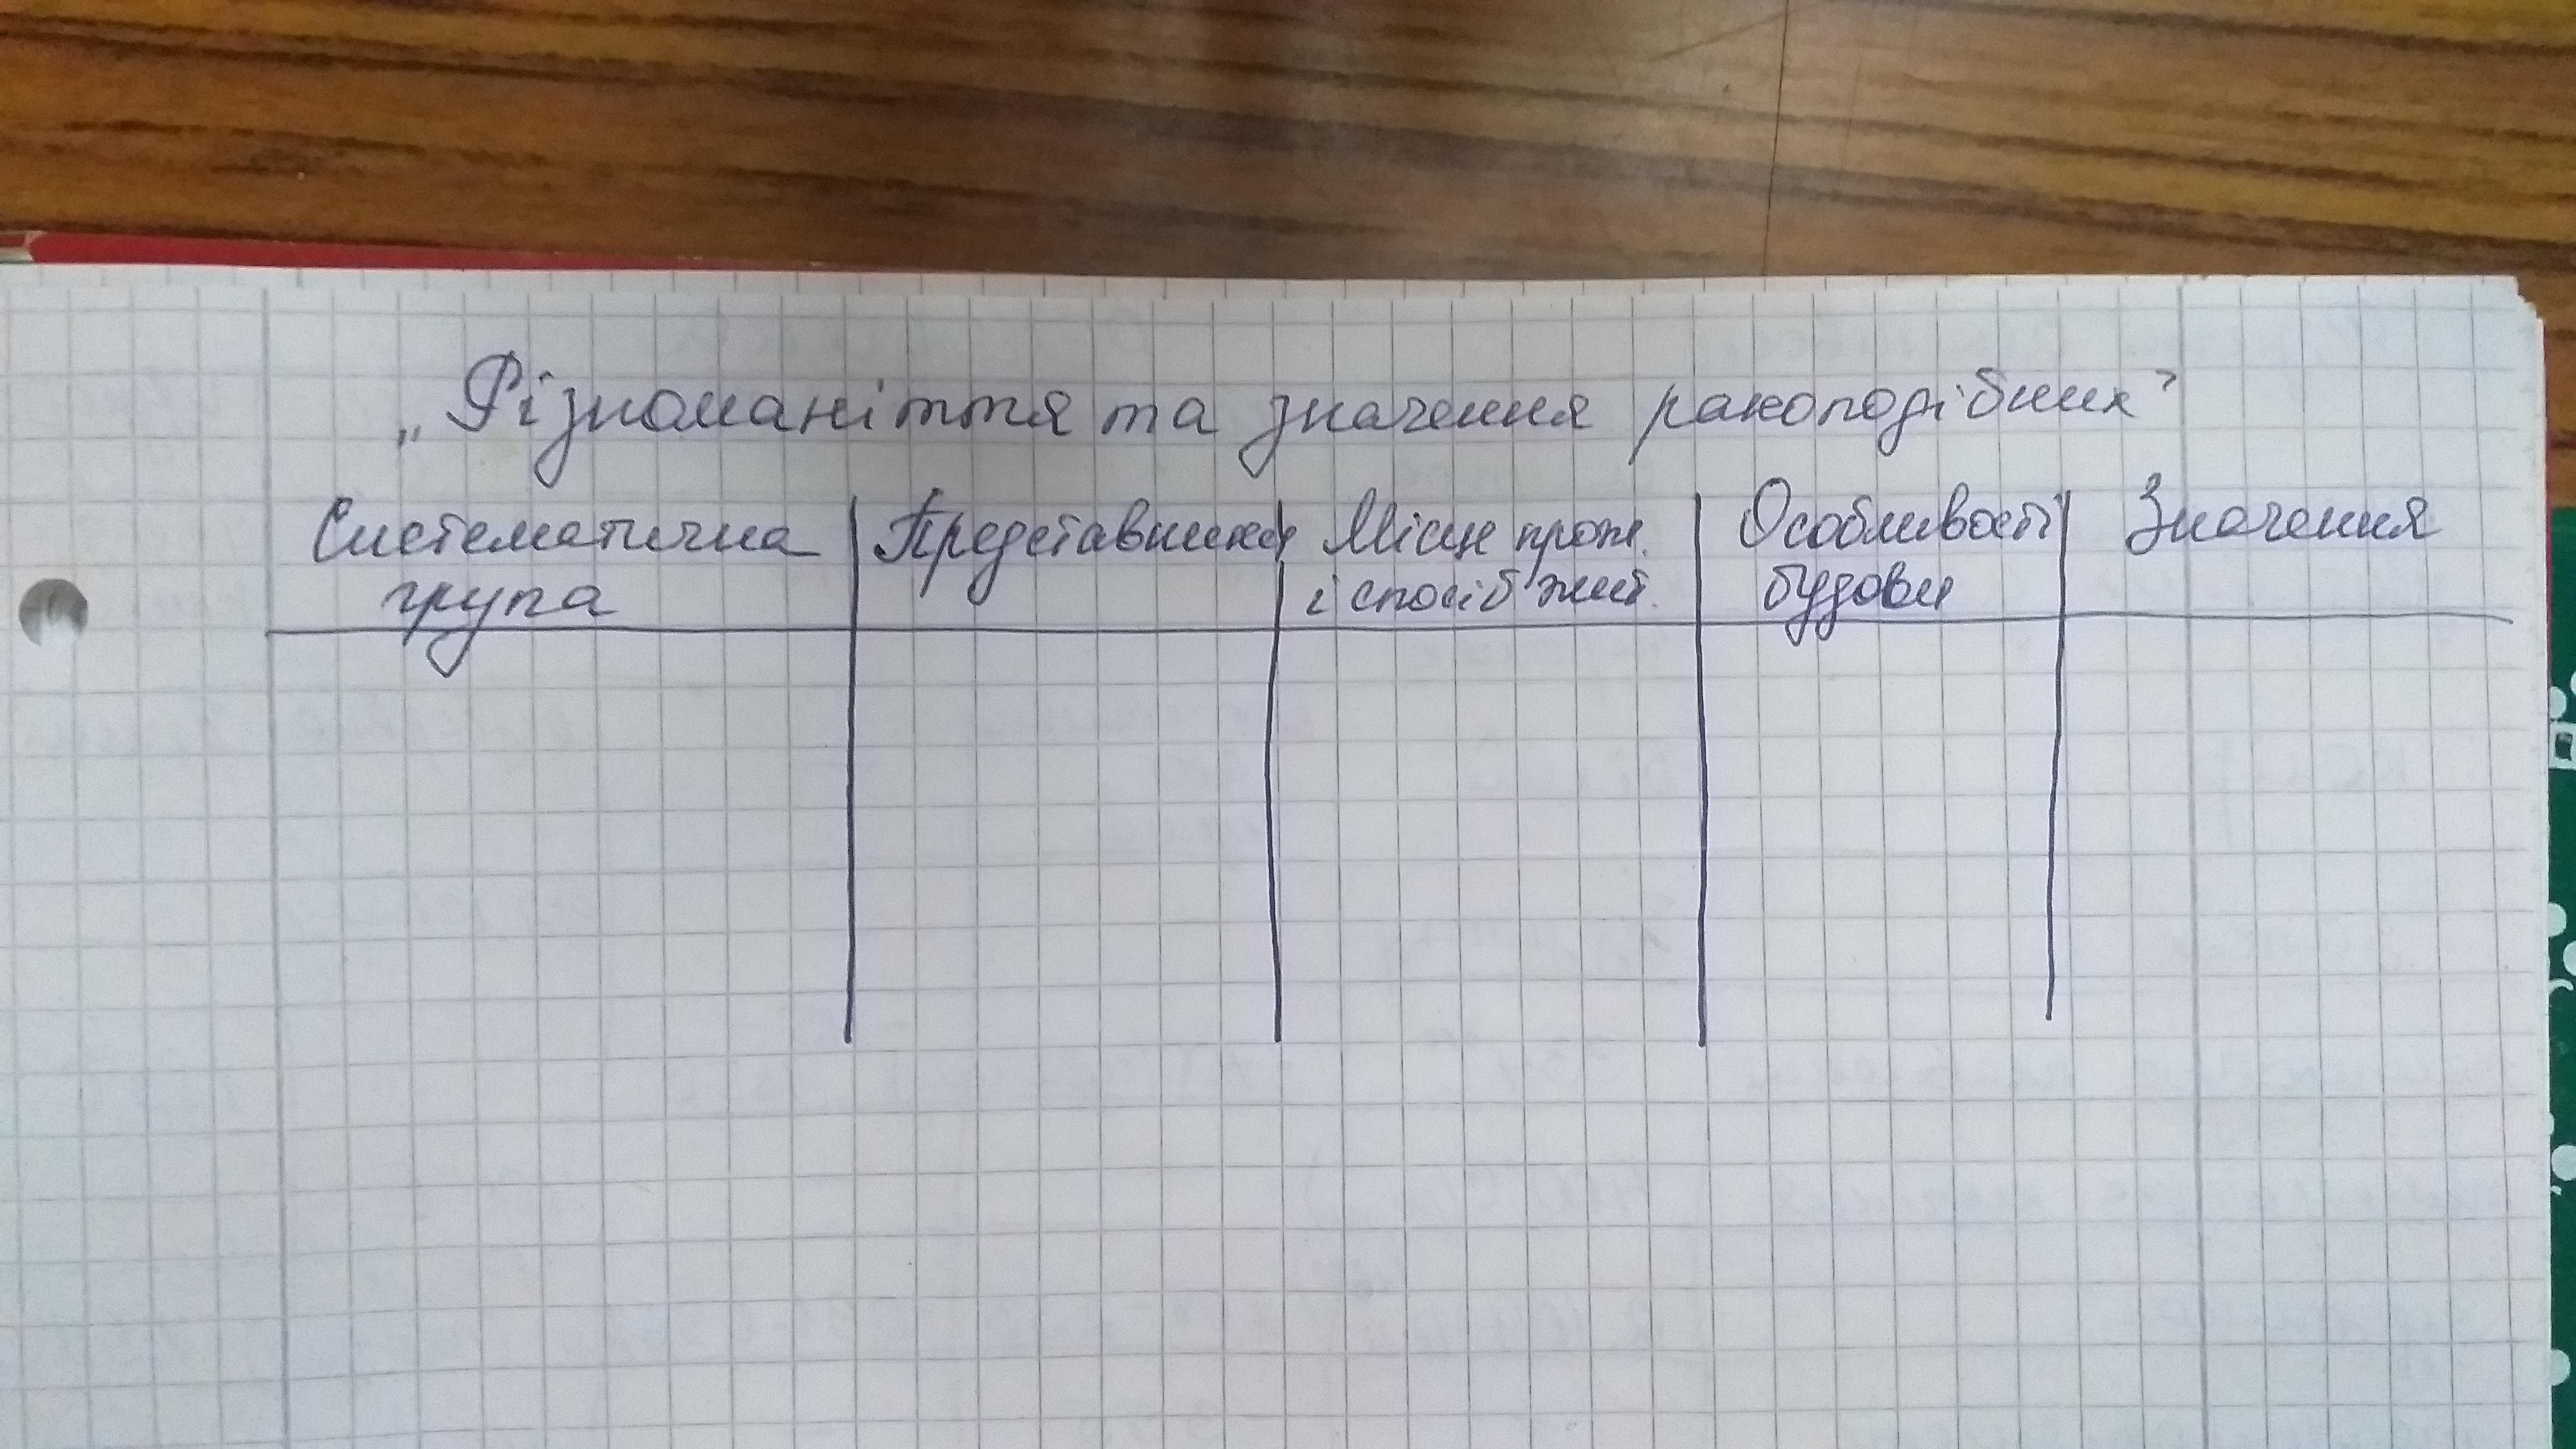 „Різноманіття та значення ракоподібних"
Систематична група
Представники
Місце прож. і спосіб жит.
Особливості будови
Значення